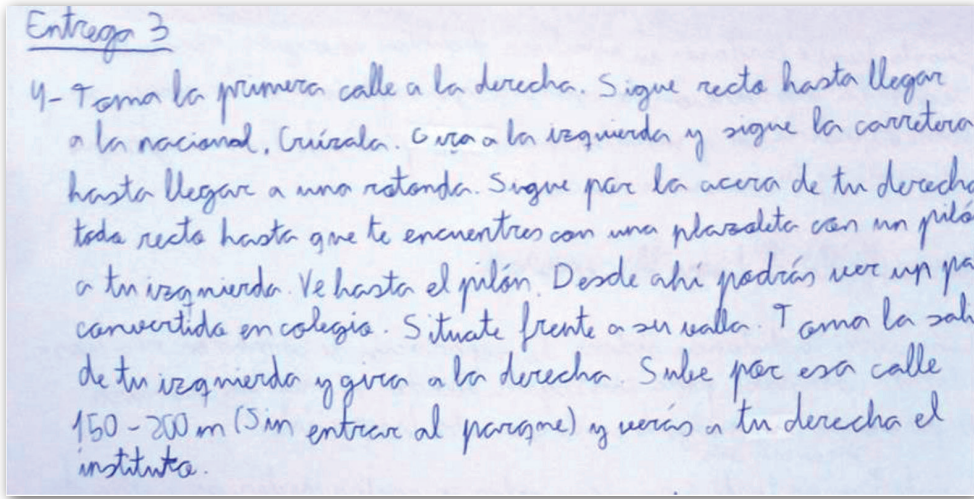 Entrega 3
4- Toma la primera calle a la derecha. Sigue recto hasta llegar
a la nacional. Crúzala. Gira a la izquierda y sigue la carretera
hasta llegar a una rotonda. Sigue por la acera de tu derecha
todo recto hasta que te encuentres con una plazoleta con un pilón
a tu izquierda. Ve hasta el pilón. Desde ahí podrás ver un pa
convertido en colegio. Situate frente a su valla. Toma la sali
de tu izquierda y gira a la derecha. Sube por esa calle
150-200 m (Sin entrar al parque) y verás a tu derecha el
instituto.